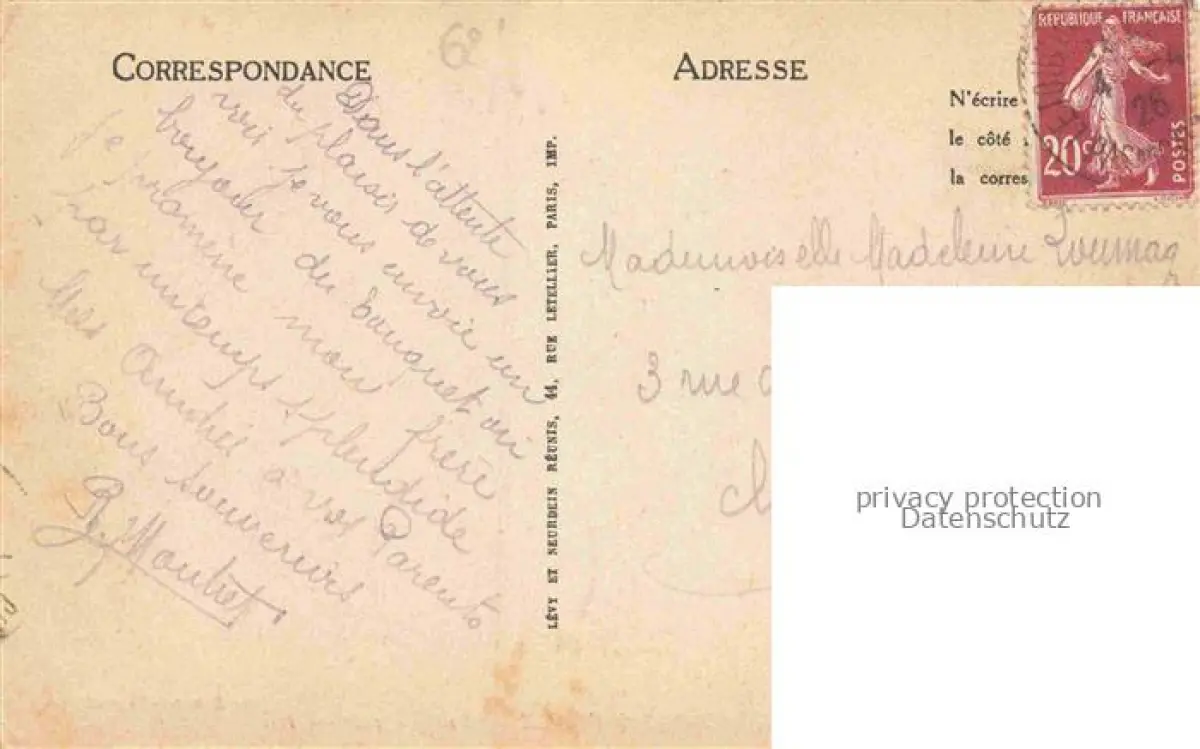 6º
CORRESPONDANCE
Dans l'attente
du plaisir de vous
voir je vous envoie un
bonjour du bouquet où
je promène mon frère
par un temps splendide
Mes Amitiés à vos Parents
Bons souvenirs
ADRESSE
N'écrire
le côté
la corres
RÉPUBLIQUE FRANÇAISE
20c
POSTES
26
Mademoiselle Madeleine
3 rue
LÉVY ET NEURDEIN RÉUNIS, 44, RUE LETELLIER, PARIS, IMP.
privacy protection
Datenschutz